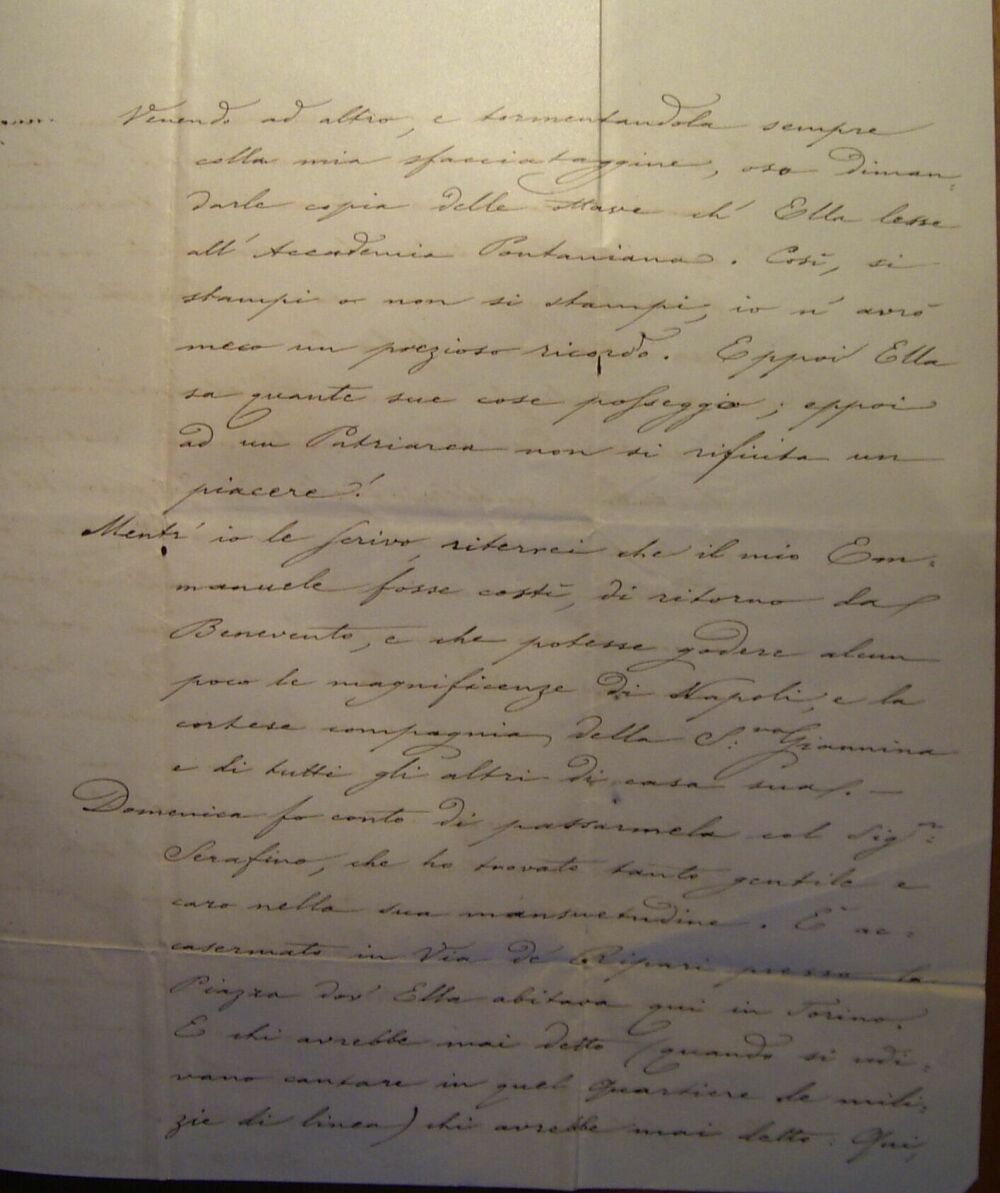 Venendo ad altro, e tormentandola sempre
colla mia sfacciataggine, oso diman-
darle copia delle ottave ch' Ella lesse
all' Accademia Pontaniana. Così, si
stampi o non si stampi, io n' avrò
meco un prezioso ricordo. Eppoi Ella
sa quante sue cose posseggio; eppoi
ad un Patriarca non si rifiuta un
piacere!
Mentr' io le scrivo, riterrei che il mio Em-
manuele fosse costì, di ritorno da
Benevento, e che potesse godere alcun
poco le magnificenze di Napoli, e la
cortese compagnia della S.ra Giannina
e di tutti gli altri di casa sua. —
Domenica fo conto di passarmela col Sig.r
Serafino, che ho trovato tanto gentile e
caro nella sua mansuetudine. È ac-
casermato in Via de' Ripari presso la
Piazza dov' Ella abitava qui in Torino.
E chi avrebbe mai detto (quando si udi-
vano cantare in quel Quartiere le mili-
zie di linea) chi avrebbe mai detto: Qui,